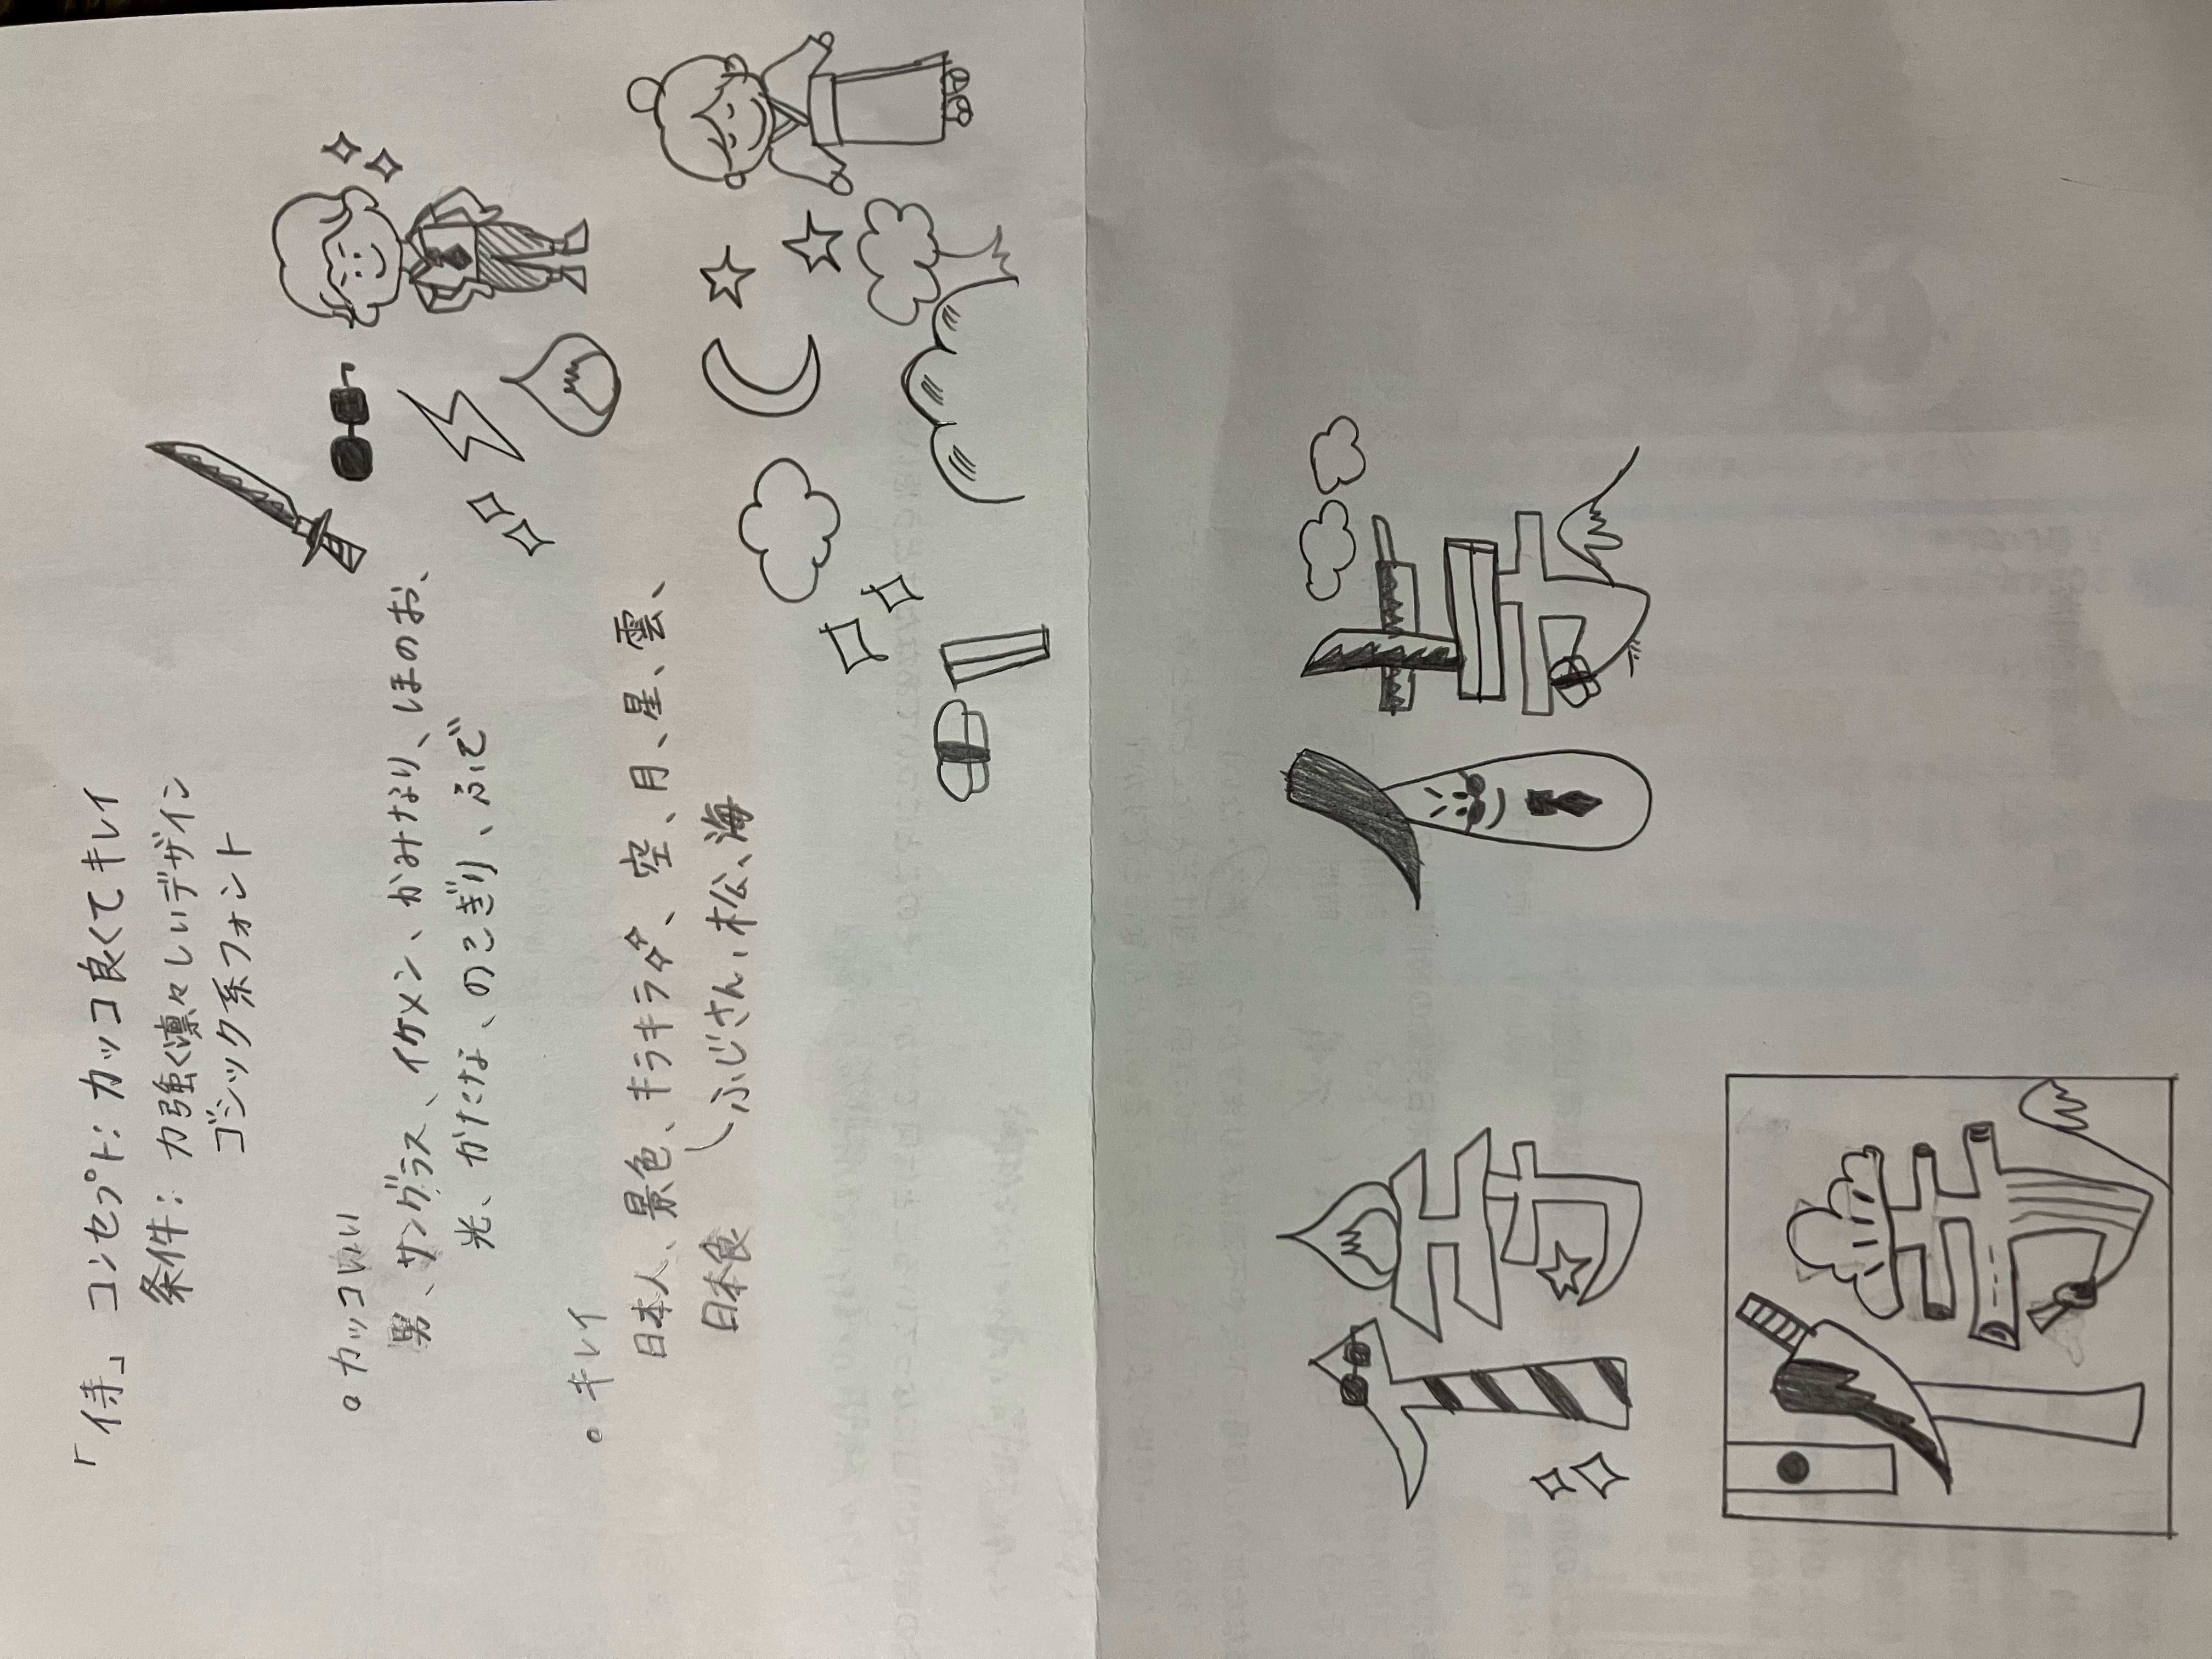 「侍」 コンセプト: カッコ良くてキレイ
条件: 力強く凛々しいデザイン
ゴシック系フォント
カッコいい
男、サングラス、イケメン、かみなり、ほのお、
光、かたな、のこぎり、ふで
キレイ
日本人、景色、キラキラ、空、月、星、雲、
日本食 ふじさん、松、海
侍 侍
侍